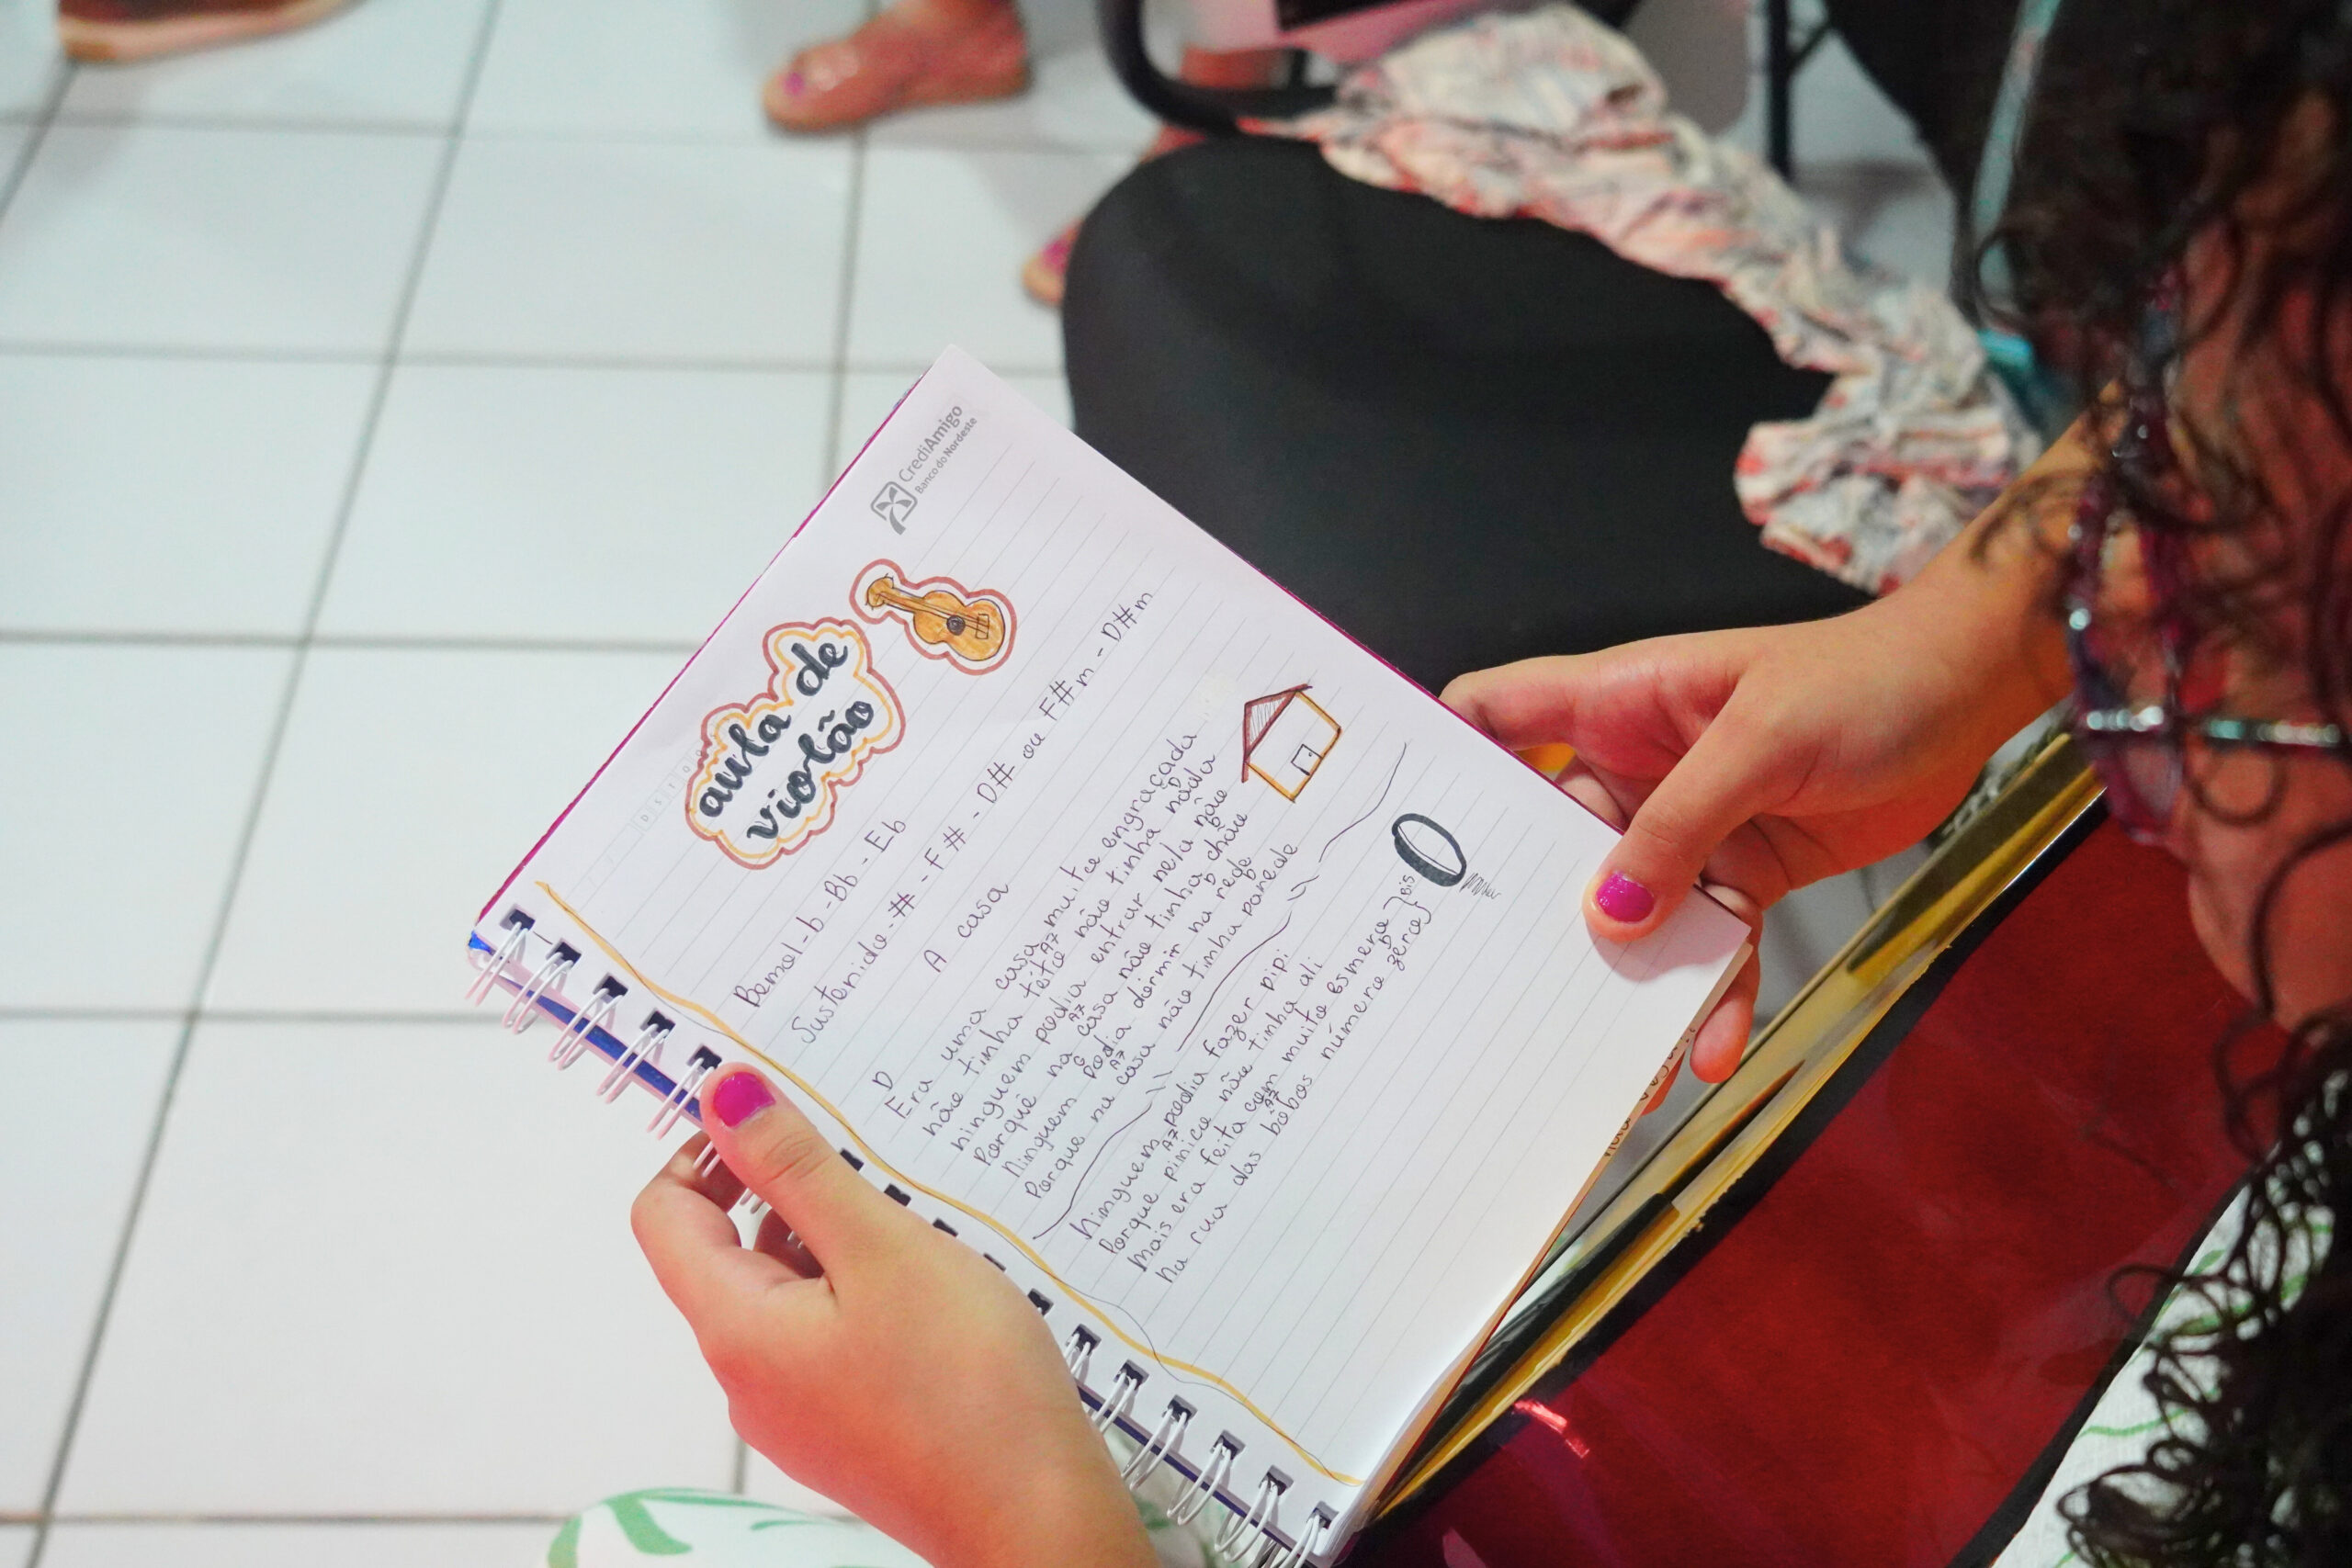 CrediAmigo
Banco do Nordeste
D S T Q
aula de
violão
Bemol - b - Bb - Eb
Sustenido - # - F# - D# ou F#m - D#m
A casa
D
Era uma casa muito engraçada
A7 D
não tinha této não tinha náda
ninguem podia entrar nela não
A7 D
Porquê na casa não tinha chão
G D
Ninguem podia dormir na rede
A7 D
Porque na casa não tinha parede
Ninguem podia fazer pipi
A7
Porque pinico não tinha ali
Mais era feita com muito Esmero } Bis
A7 D
Na rua das bôbos número zéro